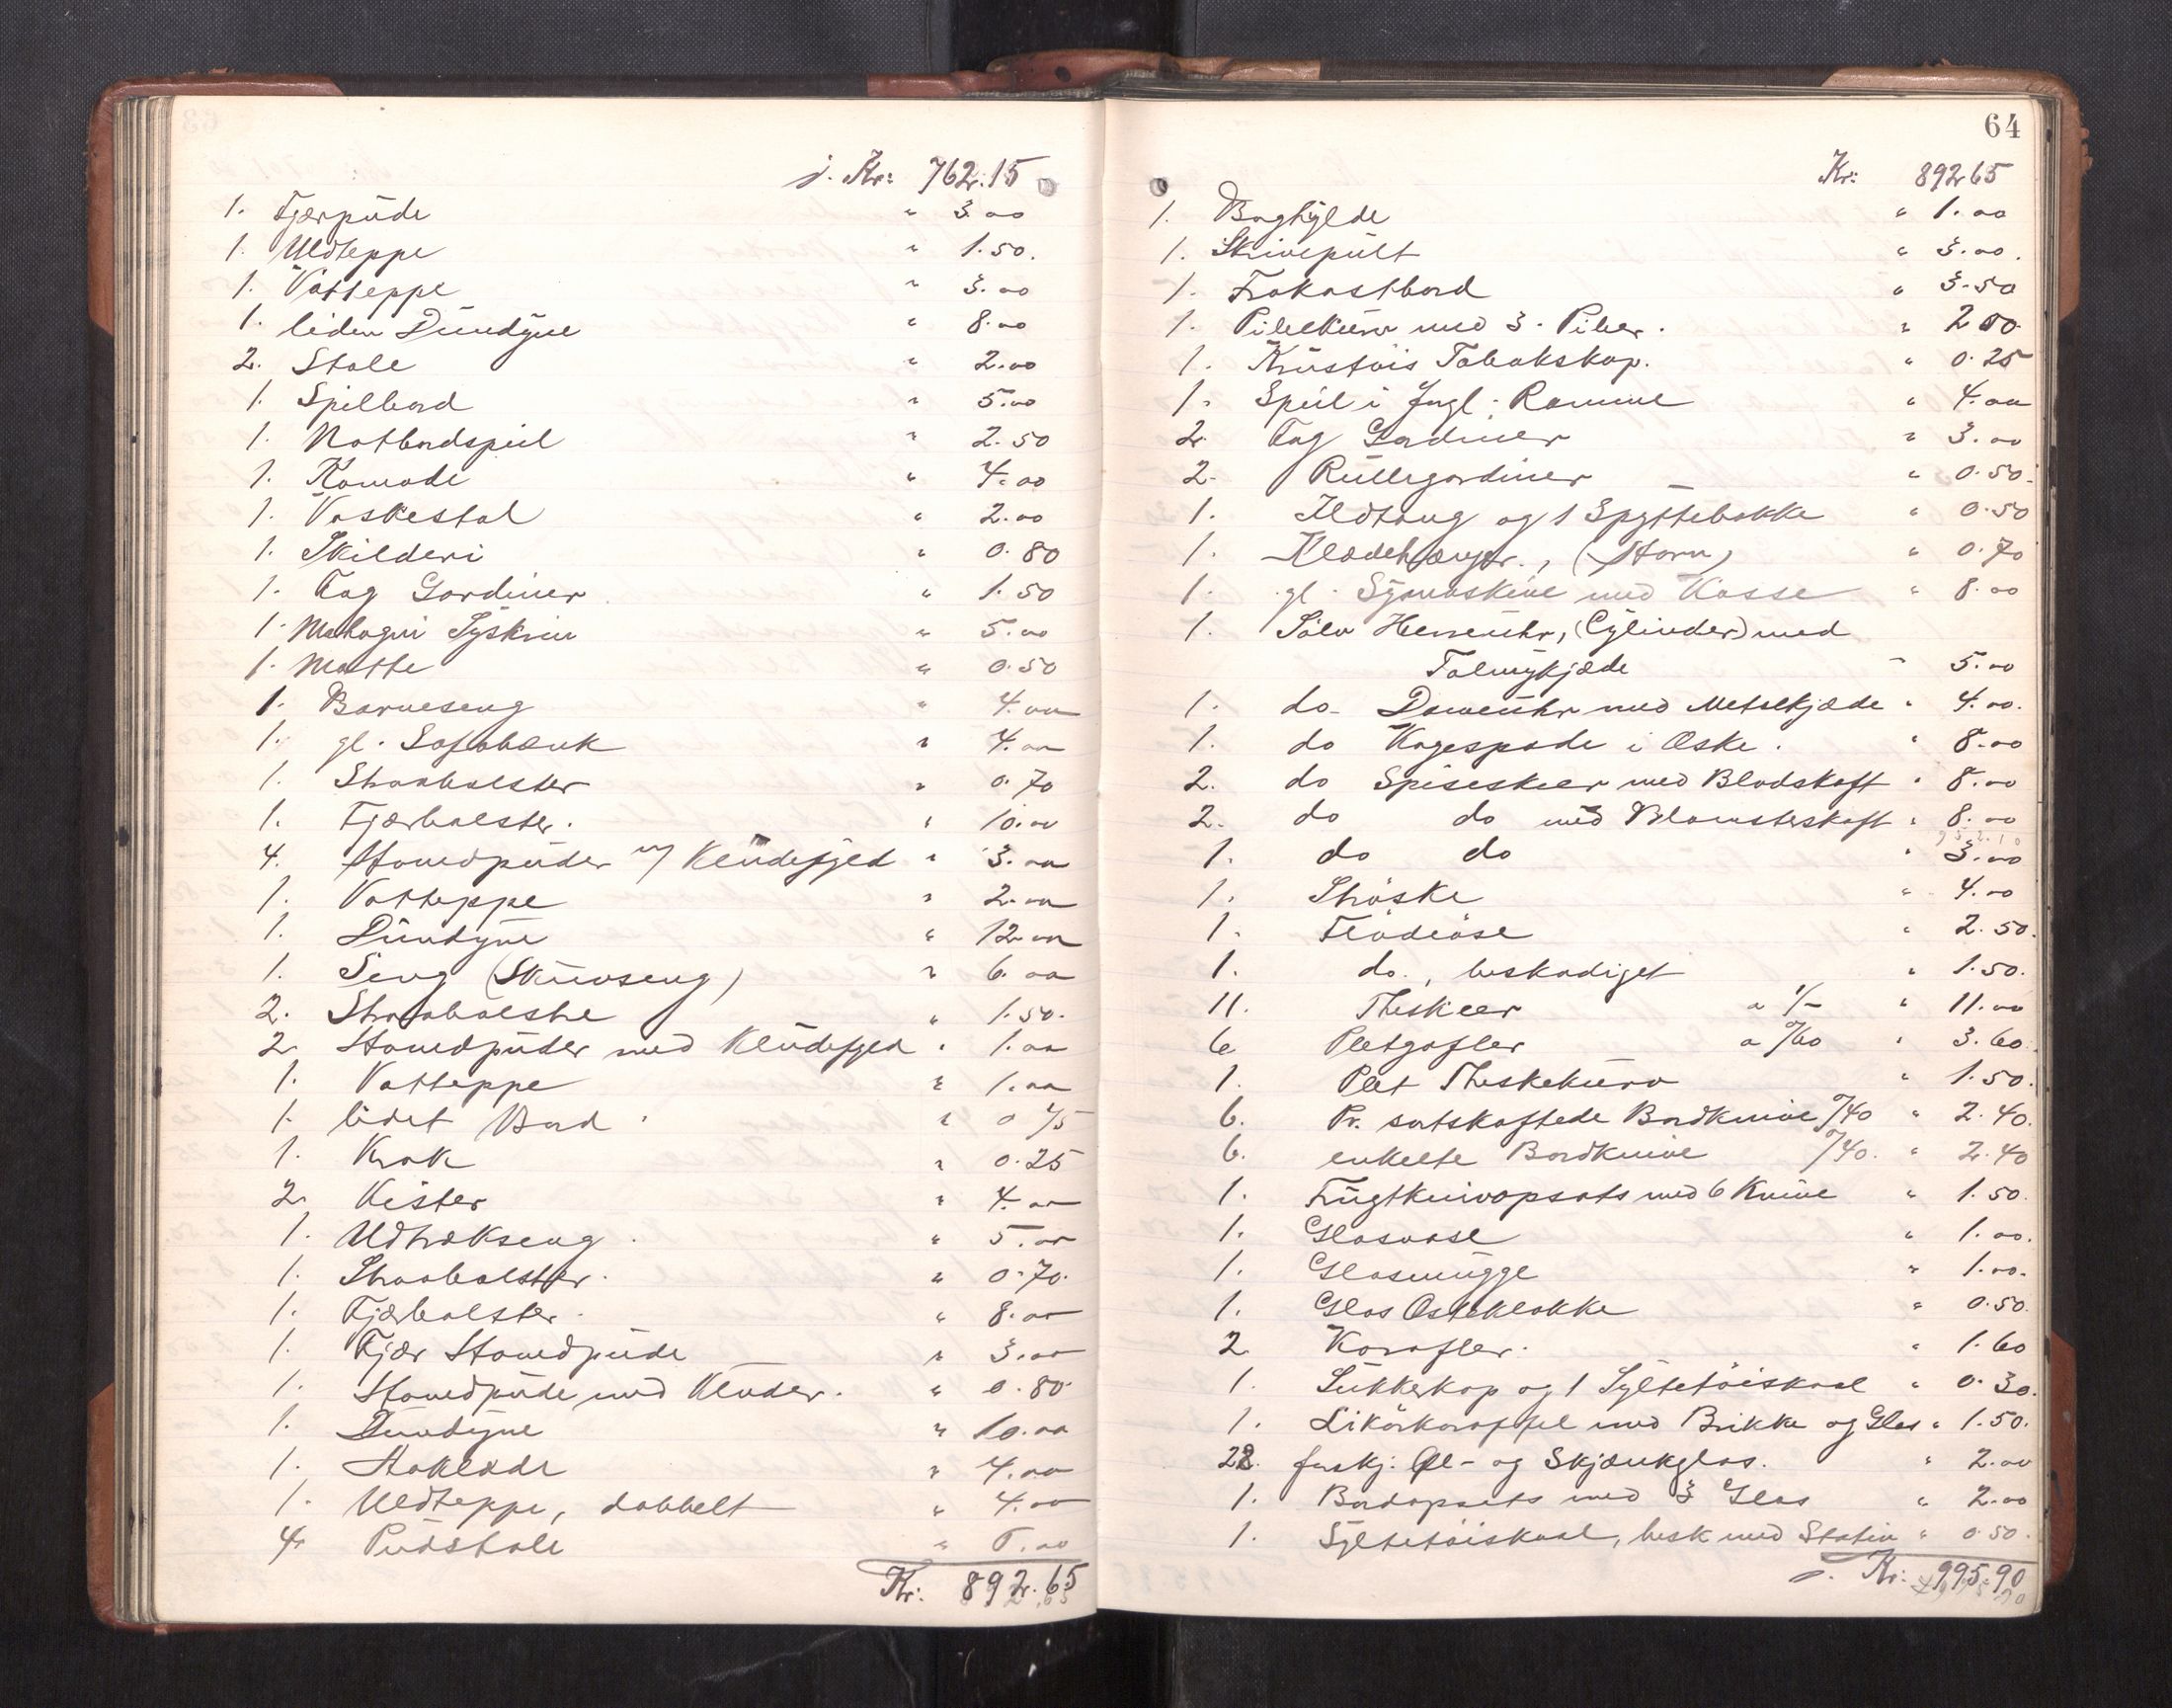 j. Kr: 762.15
1. Fjærpüde " 3.00
1. Uldteppe " 1.50.
1. Vatteppe " 3.00
1. liden Dündyne " 8.00
2. Stole " 2.00
1. Spilbord " 5.00
1. Natbordspeil " 2.50
1. Komode " 4.00
1. Vaskestol " 2.00
1. Skilderi " 0.80
1. Fag Gardiner " 1.50
1. Mahogni Syskrin " 5.00
1. Matte " 0.50
1. Barneseng " 4.00
1. gl. Sofabænk " 4.00
1. Straabolster " 0.70
1. Fjærbolster. " 10.00
4. Hovedpüder m/ Klüdefyld " 3.00
1. Vatteppe " 2.00
1. Dündyne " 12.00
1. Seng (Sküvseng) " 6.00
2. Straabolstre " 1.50.
2 Hovedpüder med Klüdefyld " 1.00
1. Vatteppe " 1.00
1. lidet Bord " 0.75
1. Krak " 0.25
2. Kister " 4.00
1. Udtrækseng " 5.00
1. Straabolster. " 0.70.
1. Fjærbolster. " 8.00
1. Fjær Hovedpüde " 3.00
1. Hovedpüde med Klüder. " 0.80
1. Dündyne " 10.00
1. Aaklæde " 4.00
1. Uldteppe, dobbelt " 4.00
4. Püdstole " 5.00
Kr: 892.65
64
Kr: 892.65
1. Boghylde " 1.00
1. Skrivepült " 3.00.
1. Frokostbord " 3.50
1. Pibekürv med 3. Piber. " 2.00
1. Krüstøis Tobakskop. " 0.25
1. Speil i Ramme " 4.00
2. Fag Gardiner " 3.00
2. Rüllegardiner " 0.50.
1. Ildtang og 1 Spyttebakke " 0.50
1. Klædehænger., (Horn) " 0.70
1. gl. Symaskine med Kasse " 8.00
1. Sölv Herreühr, (Cylinder) med
Talmykjæde " 5.00
1. do Dameühr med Metalkjæde " 4.00.
1. do Kagespade i Æske. " 8.00
2. do Spiseskeer med Bladskaft " 8.00
2. do do med Blomsterskaft " 8.00
1. do do " 3.00
1. Ströske " 4.00
1. Flödeöse " 2.50.
1. do., beskadiget " 1.50.
11. Theskeer a 1/- " 11.00
6 Pletgafler a 0/60 " 3.60.
1. Plet Theskekürv " 1.50.
6. Pr. sortskaftede Bordknive 0/40 " 2.40.
6. enkelte Bordknive 0/40. " 2.40
1. Frügtknivopsats med 6 Knive " 1.50.
1. Glasvase " 1.00.
1. Glasmügge " 1.00.
1. Glas Osteklokke " 0.50.
2 Karafler. " 1.60
1. Sükkerkop og 1 Syltetöiskaal " 0.30.
1. Likörkaraffel med Brikke og Glas " 1.50.
22. forskj. Øl- og Skjænkglas. " 2.00
1. Bordopsats med 3 Glas " 2.00
1. Syltetöiskaal, besk. med Stativ " 0.50.
j. Kr: 995.90